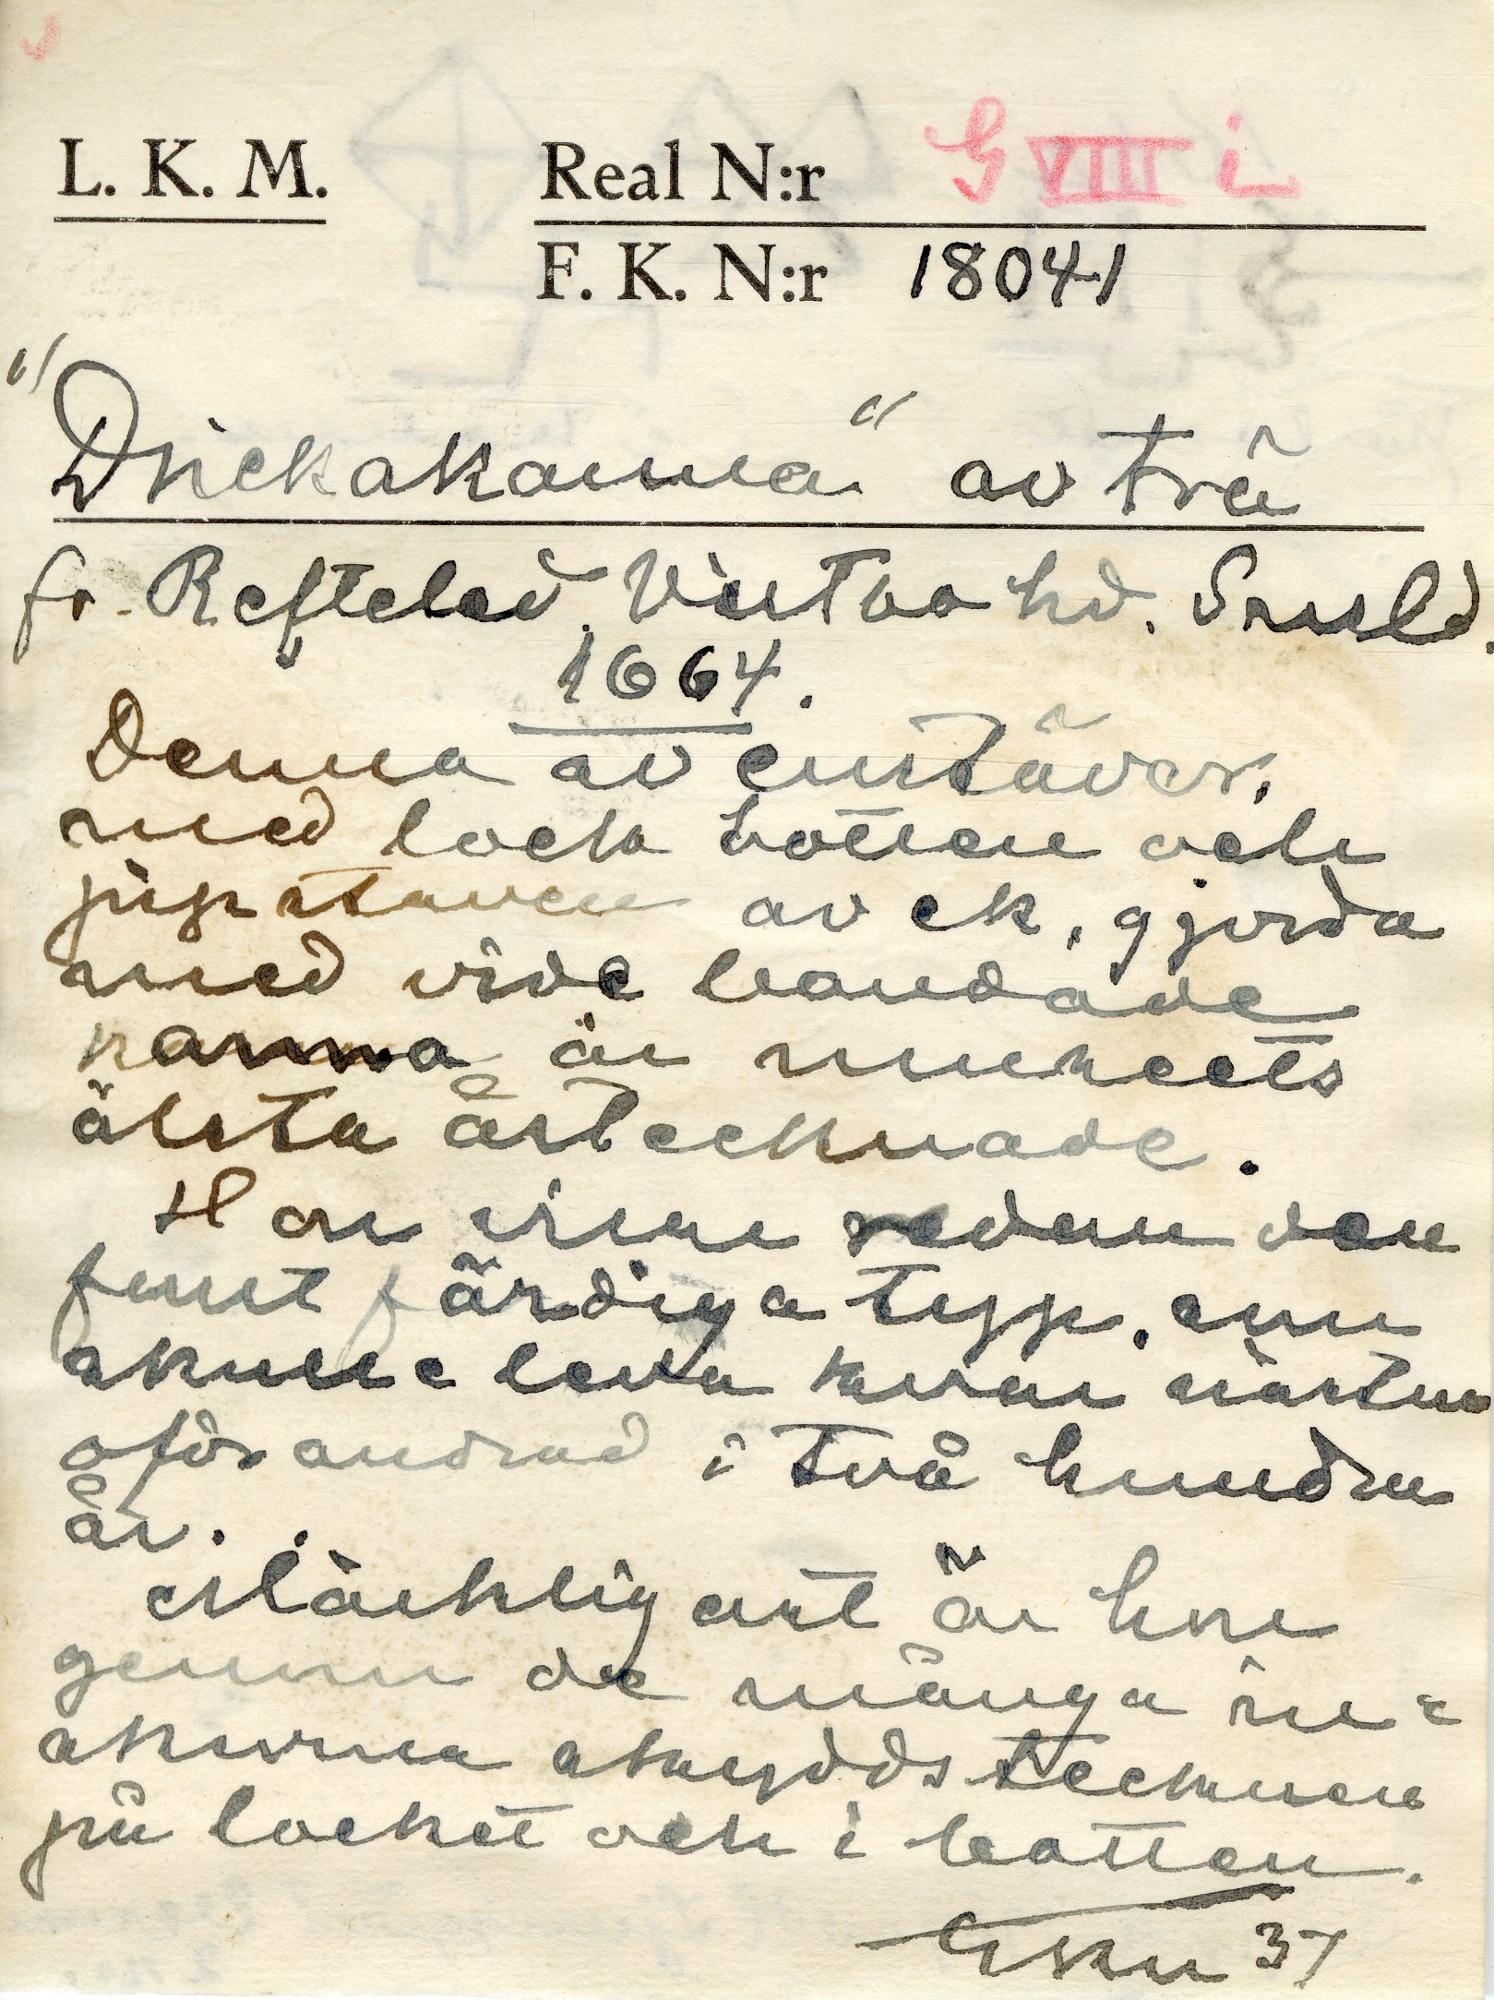 L. K. M.
Real N:r G VIII i
F. K. N:r 18041
"Drickakanna" av trä
fr. Refteled. Västbo hd. Småld.
1664.
Denna av enstäver,
med lock botten och
pipstaven av ek, gjorda
med vide bandade
kanna är museets
älsta årtecknade.
Hon visar redan den
fast färdiga typ, som
skulle leva kvar nästan
oförandrad i två hundra
år.
Märkligast är hon
genom de många in-
skurna skyddstecknen
på locket och i botten.
37